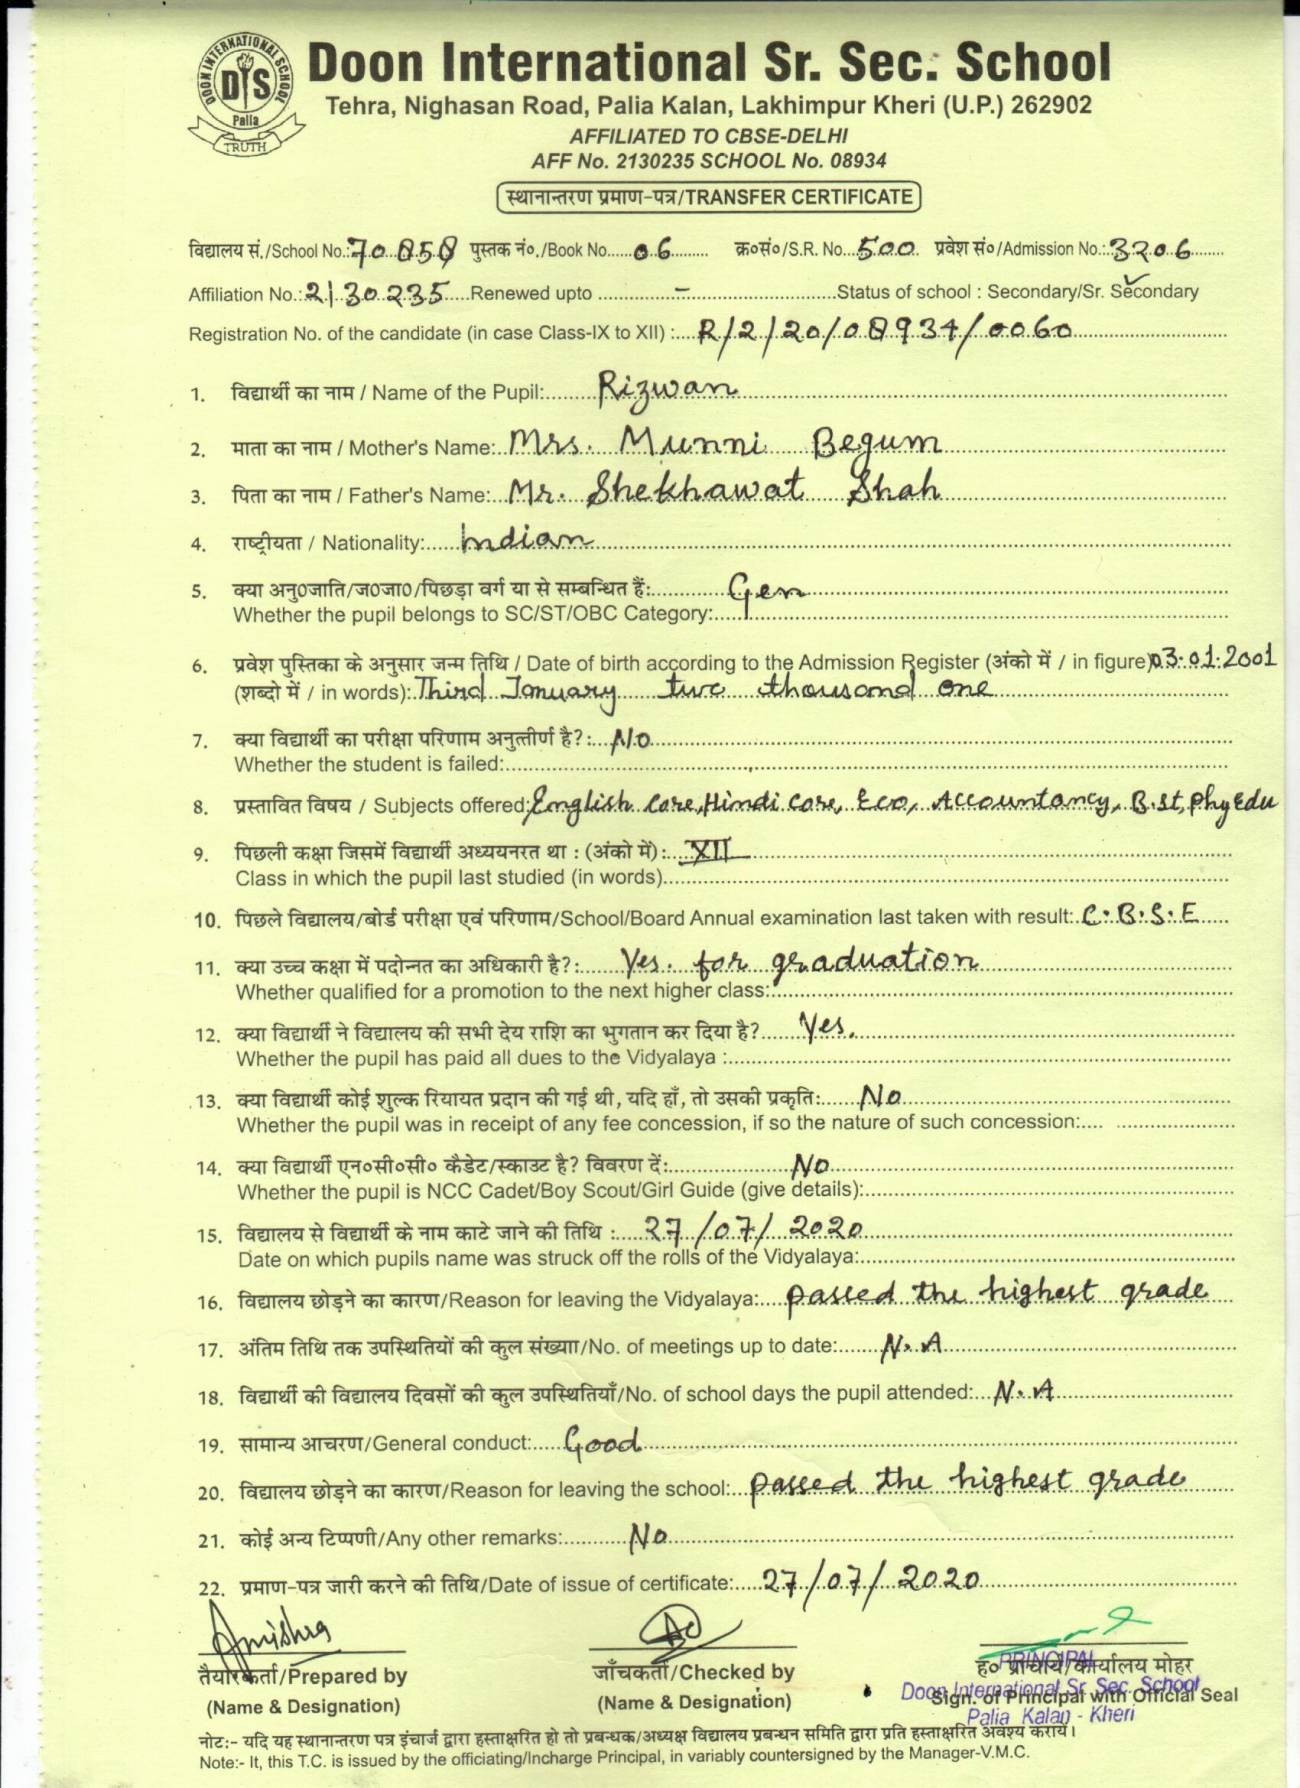 DOON INTERNATIONAL SCHOOL
DIS
Palia
TRUTH
Doon International Sr. Sec. School
Tehra, Nighasan Road, Palia Kalan, Lakhimpur Kheri (U.P.) 262902
AFFILIATED TO CBSE-DELHI
AFF No. 2130235 SCHOOL No. 08934
स्थानान्तरण प्रमाण-पत्र/TRANSFER CERTIFICATE
विद्यालय सं./School No.: 70858 पुस्तक नं०./Book No. 06 क्र०सं०/S.R. No. 500 प्रवेश सं०/Admission No.: 3206
Affiliation No.: 2130235 Renewed upto - Status of school : Secondary/Sr. Secondary
Registration No. of the candidate (in case Class-IX to XII) : R/2/20/08934/0060
1. विद्यार्थी का नाम / Name of the Pupil: Rizwan
2. माता का नाम / Mother's Name: Mrs. Munni Begum
3. पिता का नाम / Father's Name: Mr. Shekhawat Shah
4. राष्ट्रीयता / Nationality: Indian
5. क्या अनु०जाति/ज०जा०/पिछड़ा वर्ग या से सम्बन्धित हैं: Gen
Whether the pupil belongs to SC/ST/OBC Category:
6. प्रवेश पुस्तिका के अनुसार जन्म तिथि / Date of birth according to the Admission Register (अंको में / in figure) 03.01.2001
(शब्दो में / in words): Third January two thousand one
7. क्या विद्यार्थी का परीक्षा परिणाम अनुत्तीर्ण है?: No
Whether the student is failed:
8. प्रस्तावित विषय / Subjects offered: English Core, Hindi Core, Eco, Accountancy, B.st, Phy Edu
9. पिछली कक्षा जिसमें विद्यार्थी अध्ययनरत था : (अंको में) : XII
Class in which the pupil last studied (in words)
10. पिछले विद्यालय/बोर्ड परीक्षा एवं परिणाम/School/Board Annual examination last taken with result: C.B.S.E
11. क्या उच्च कक्षा में पदोन्नत का अधिकारी है?: Yes. for graduation
Whether qualified for a promotion to the next higher class:
12. क्या विद्यार्थी ने विद्यालय की सभी देय राशि का भुगतान कर दिया है? Yes.
Whether the pupil has paid all dues to the Vidyalaya :
13. क्या विद्यार्थी कोई शुल्क रियायत प्रदान की गई थी, यदि हाँ, तो उसकी प्रकृति: No
Whether the pupil was in receipt of any fee concession, if so the nature of such concession:
14. क्या विद्यार्थी एन०सी०सी० कैडेट/स्काउट है? विवरण दें: No
Whether the pupil is NCC Cadet/Boy Scout/Girl Guide (give details):
15. विद्यालय से विद्यार्थी के नाम काटे जाने की तिथि : 27/07/2020
Date on which pupils name was struck off the rolls of the Vidyalaya:
16. विद्यालय छोड़ने का कारण/Reason for leaving the Vidyalaya: passed the highest grade
17. अंतिम तिथि तक उपस्थितियों की कुल संख्याा/No. of meetings up to date: N.A
18. विद्यार्थी की विद्यालय दिवसों की कुल उपस्थितियाँ/No. of school days the pupil attended: N.A
19. सामान्य आचरण/General conduct: Good
20. विद्यालय छोड़ने का कारण/Reason for leaving the school: passed the highest grade
21. कोई अन्य टिप्पणी/Any other remarks: No
22. प्रमाण-पत्र जारी करने की तिथि/Date of issue of certificate: 27/07/2020
तैयारकर्ता/Prepared by जाँचकर्ता/Checked by ह० प्राचार्य/कार्यालय मोहर
PRINCIPAL
Doon International Sr. Sec. School
(Name & Designation) (Name & Designation) Sign. of Principal with Official Seal
Palia Kalan - Kheri
नोट:- यदि यह स्थानान्तरण पत्र इंचार्ज द्वारा हस्ताक्षरित हो तो प्रबन्धक/अध्यक्ष विद्यालय प्रबन्धन समिति द्वारा प्रति हस्ताक्षरित अवश्य करायें।
Note:- It, this T.C. is issued by the officiating/Incharge Principal, in variably countersigned by the Manager-V.M.C.